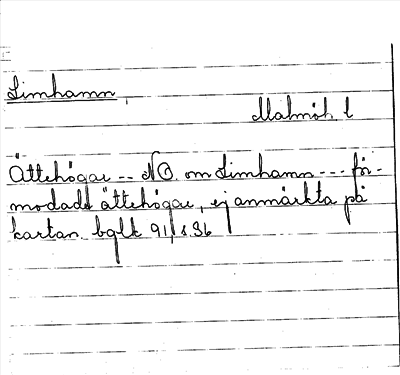 Limhamn,
Malmöh. l
Ättehögar -- N.O. om Limhamn --- för-
modade ättehögar, ej anmärkta på
kartan. bglt 91, s. 36